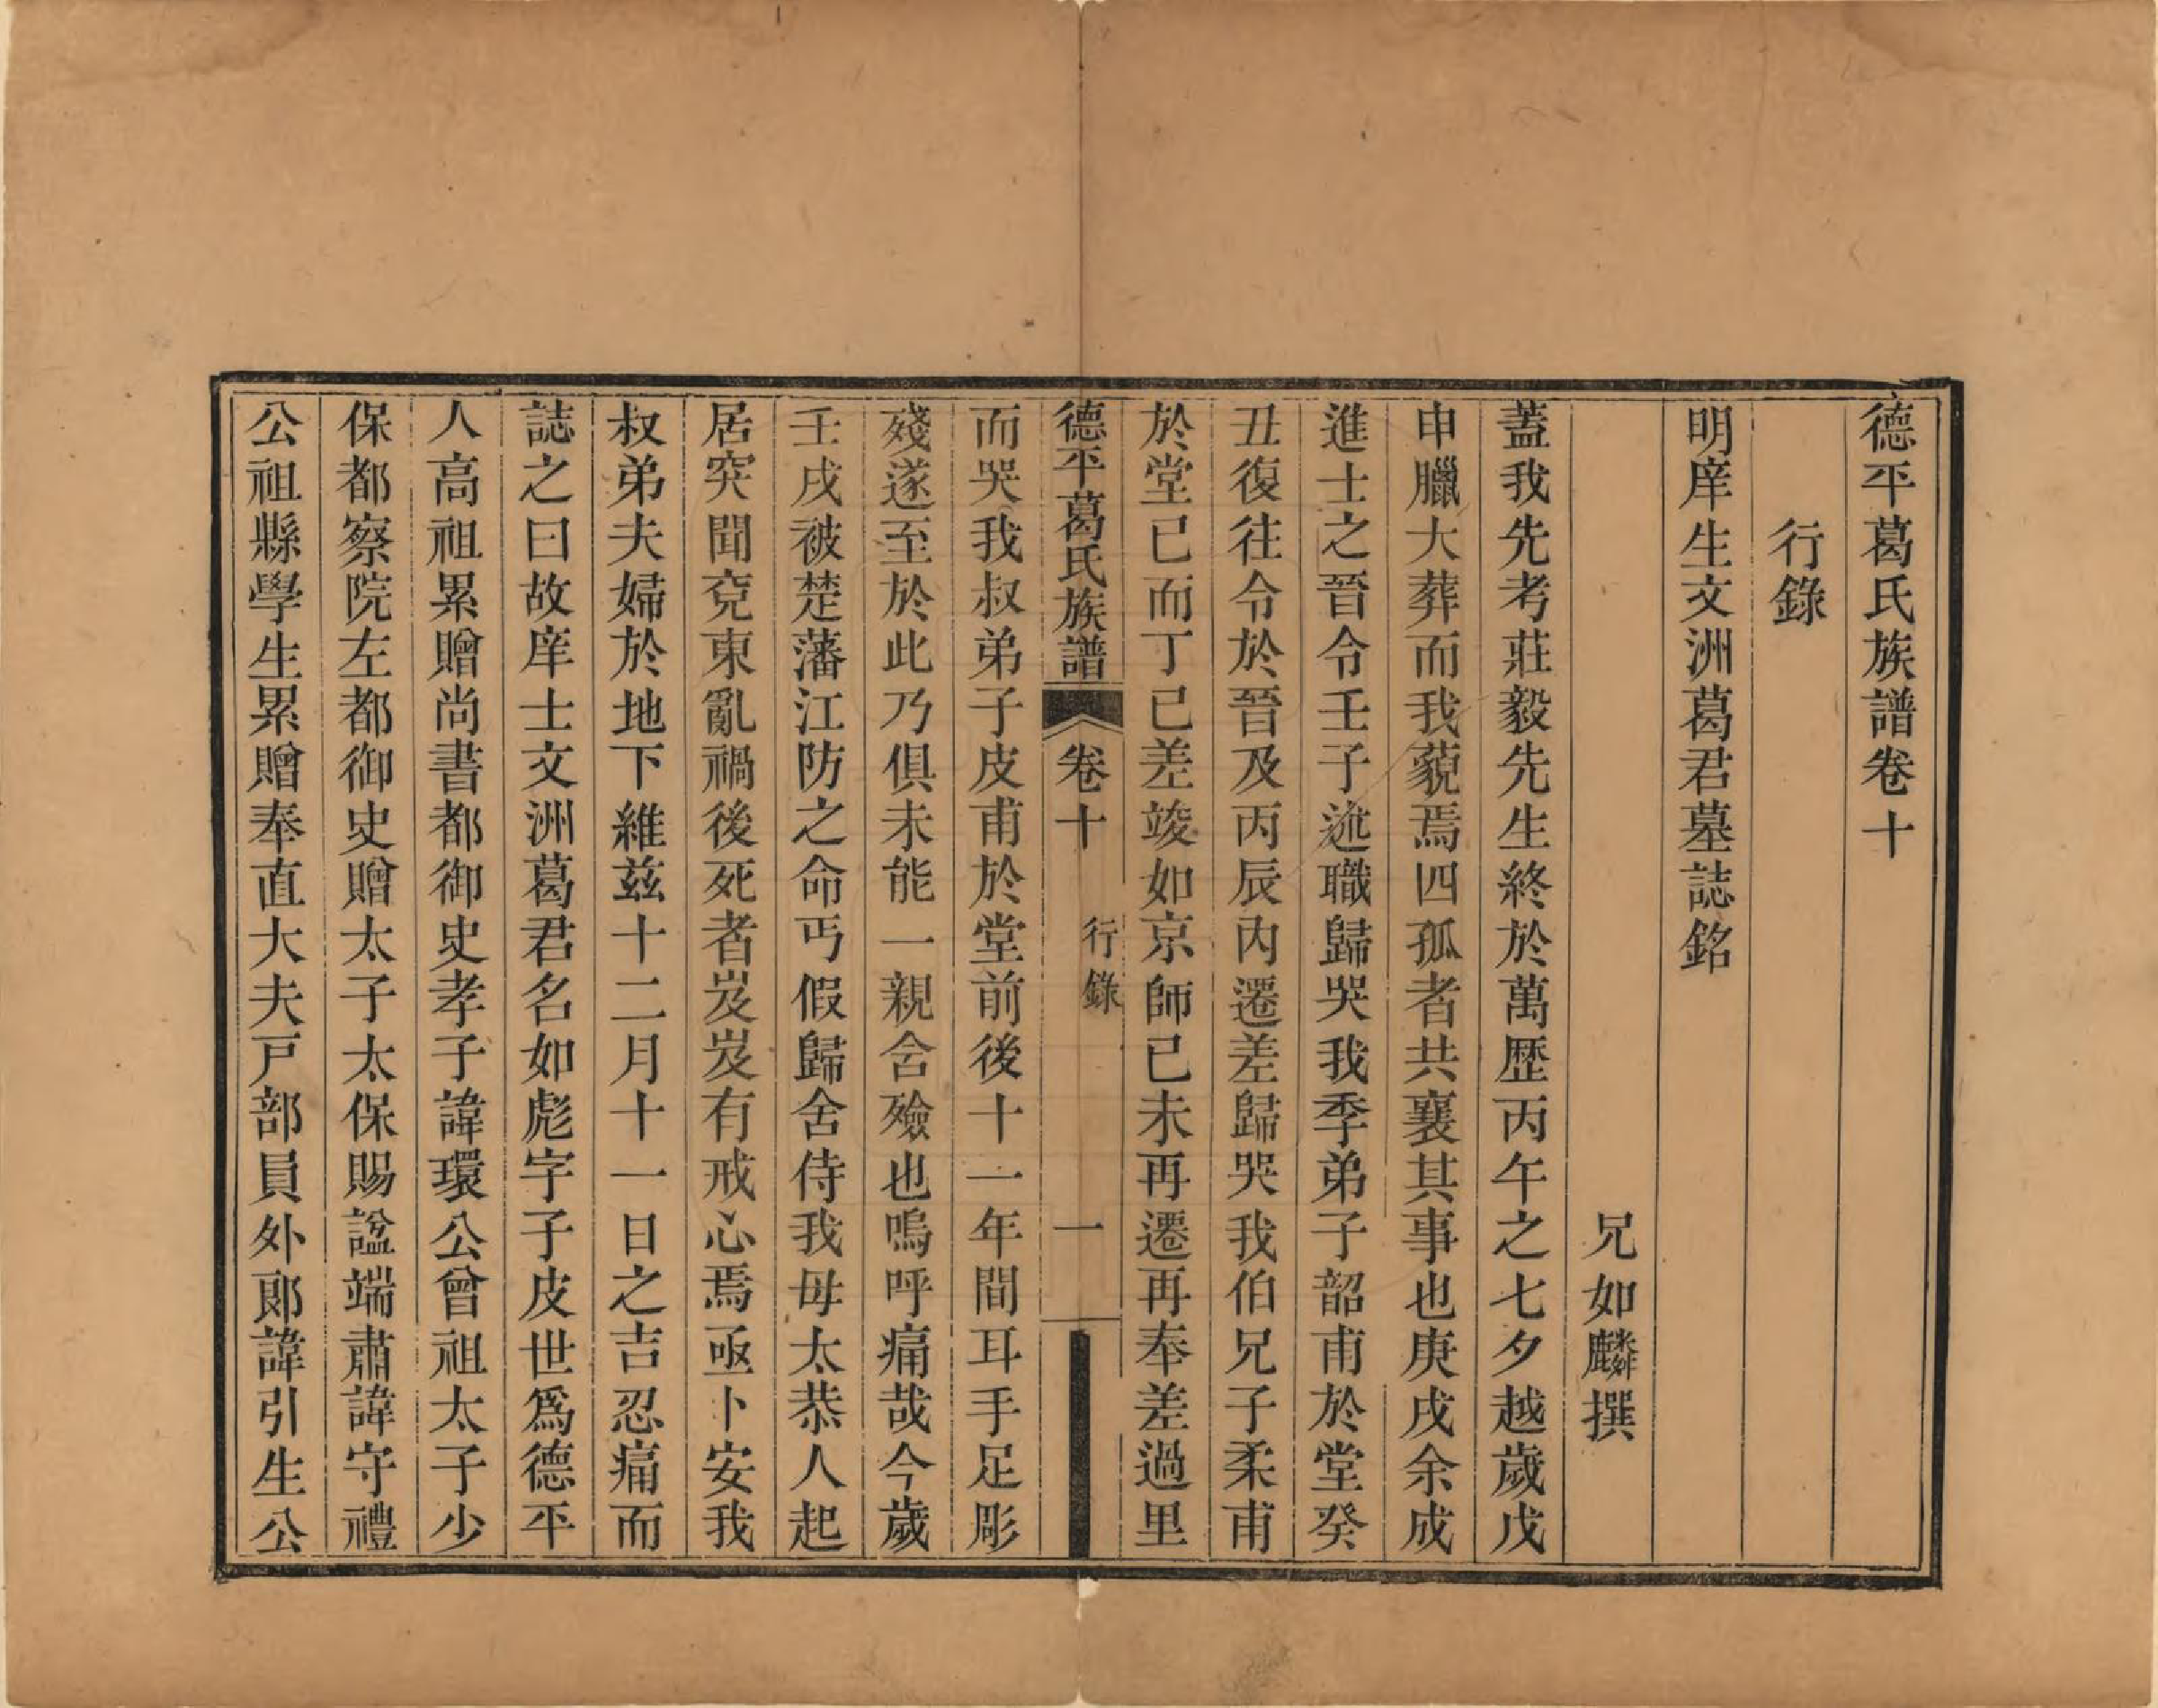 德平葛氏族譜卷十
行錄
明庠生文洲葛君墓誌銘
兄如麟撰
蓋我先考莊毅先生終於萬歷丙午之七夕越歲戊
申臘大葬而我藐焉四孤者共襄其事也庚戌余成
進士之晉令壬子述職歸哭我季弟子韶甫於堂癸
丑復往令於晉及丙辰内遷差歸哭我伯兄子柔甫
於堂已而丁巳差竣如京師已未再遷再奉差過里
德平葛氏族譜 卷十 行錄 一
而哭我叔弟子皮甫於堂前後十一年間耳手足彫
殘遂至於此乃俱未能一親含殮也嗚呼痛哉今歲
壬戌被楚藩江防之命丐假歸舍侍我母太恭人起
居突聞兗東亂禍後死者岌岌有戒心焉亟卜安我
叔弟夫婦於地下維兹十二月十一日之吉忍痛而
誌之曰故庠士文洲葛君名如彪字子皮世爲德平
人高祖累贈尚書都御史孝子諱環公曾祖太子少
保都察院左都御史贈太子太保賜諡端肅諱守禮
公祖縣學生累贈奉直大夫戸部員外郎諱引生公